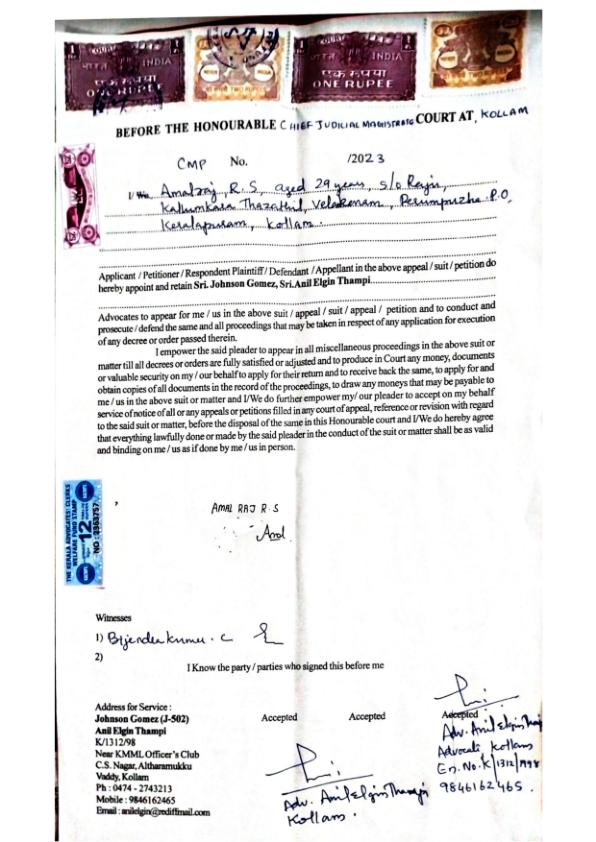 COURT FEE
INDIA
भारत
एक रुपया
ONE RUPEE
INDIA
एक रुपया
ONE RUPEE
BEFORE THE HONOURABLE CHIEF JUDICIAL MAGISTRATE COURT AT, KOLLAM
CMP No. /2023
I/We Amalraj, R.S, aged 29 years, S/o Raju,
Kallumkara Thazathil, Velakonam, Perumpuzha P.O,
Keralapuram, Kollam.
Applicant / Petitioner / Respondent Plaintiff / Defendant / Appellant in the above appeal / suit / petition do
hereby appoint and retain Sri. Johnson Gomez, Sri.Anil Elgin Thampi
Advocates to appear for me / us in the above suit / appeal / suit / appeal / petition and to conduct and
prosecute / defend the same and all proceedings that may be taken in respect of any application for execution
of any decree or order passed therein.
I empower the said pleader to appear in all miscellaneous proceedings in the above suit or
matter till all decrees or orders are fully satisfied or adjusted and to produce in Court any money, documents
or valuable security on my / our behalf to apply for their return and to receive back the same, to apply for and
obtain copies of all documents in the record of the proceedings, to draw any moneys that may be payable to
me / us in the above suit or matter and I/We do further empower my/ our pleader to accept on my behalf
service of notice of all or any appeals or petitions filled in any court of appeal, reference or revision with regard
to the said suit or matter, before the disposal of the same in this Honourable court and I/We do hereby agree
that everything lawfully done or made by the said pleader in the conduct of the suit or matter shall be as valid
and binding on me / us as if done by me / us in person.
THE KERALA ADVOCATES' CLERKS
WELFARE FUND STAMP
12
AMAL RAJ R.S
Amal
Witnesses
1) Bijendrakumar. C
2)
I Know the party / parties who signed this before me
Address for Service :
Johnson Gomez (J-502)
Anil Elgin Thampi
K/1312/98
Near KMML Officer's Club
C.S. Nagar, Altharamukku
Vaddy, Kollam
Ph : 0474 - 2743213
Mobile : 9846162465
Email : anilelgin@rediffmail.com
Accepted
Adv. Anil Elgin Thampi
Kollam.
Accepted
Accepted
Adv. Anil Elgin Thampi
Advocate Kollam
En. No. K/1312/1998
9846162465.